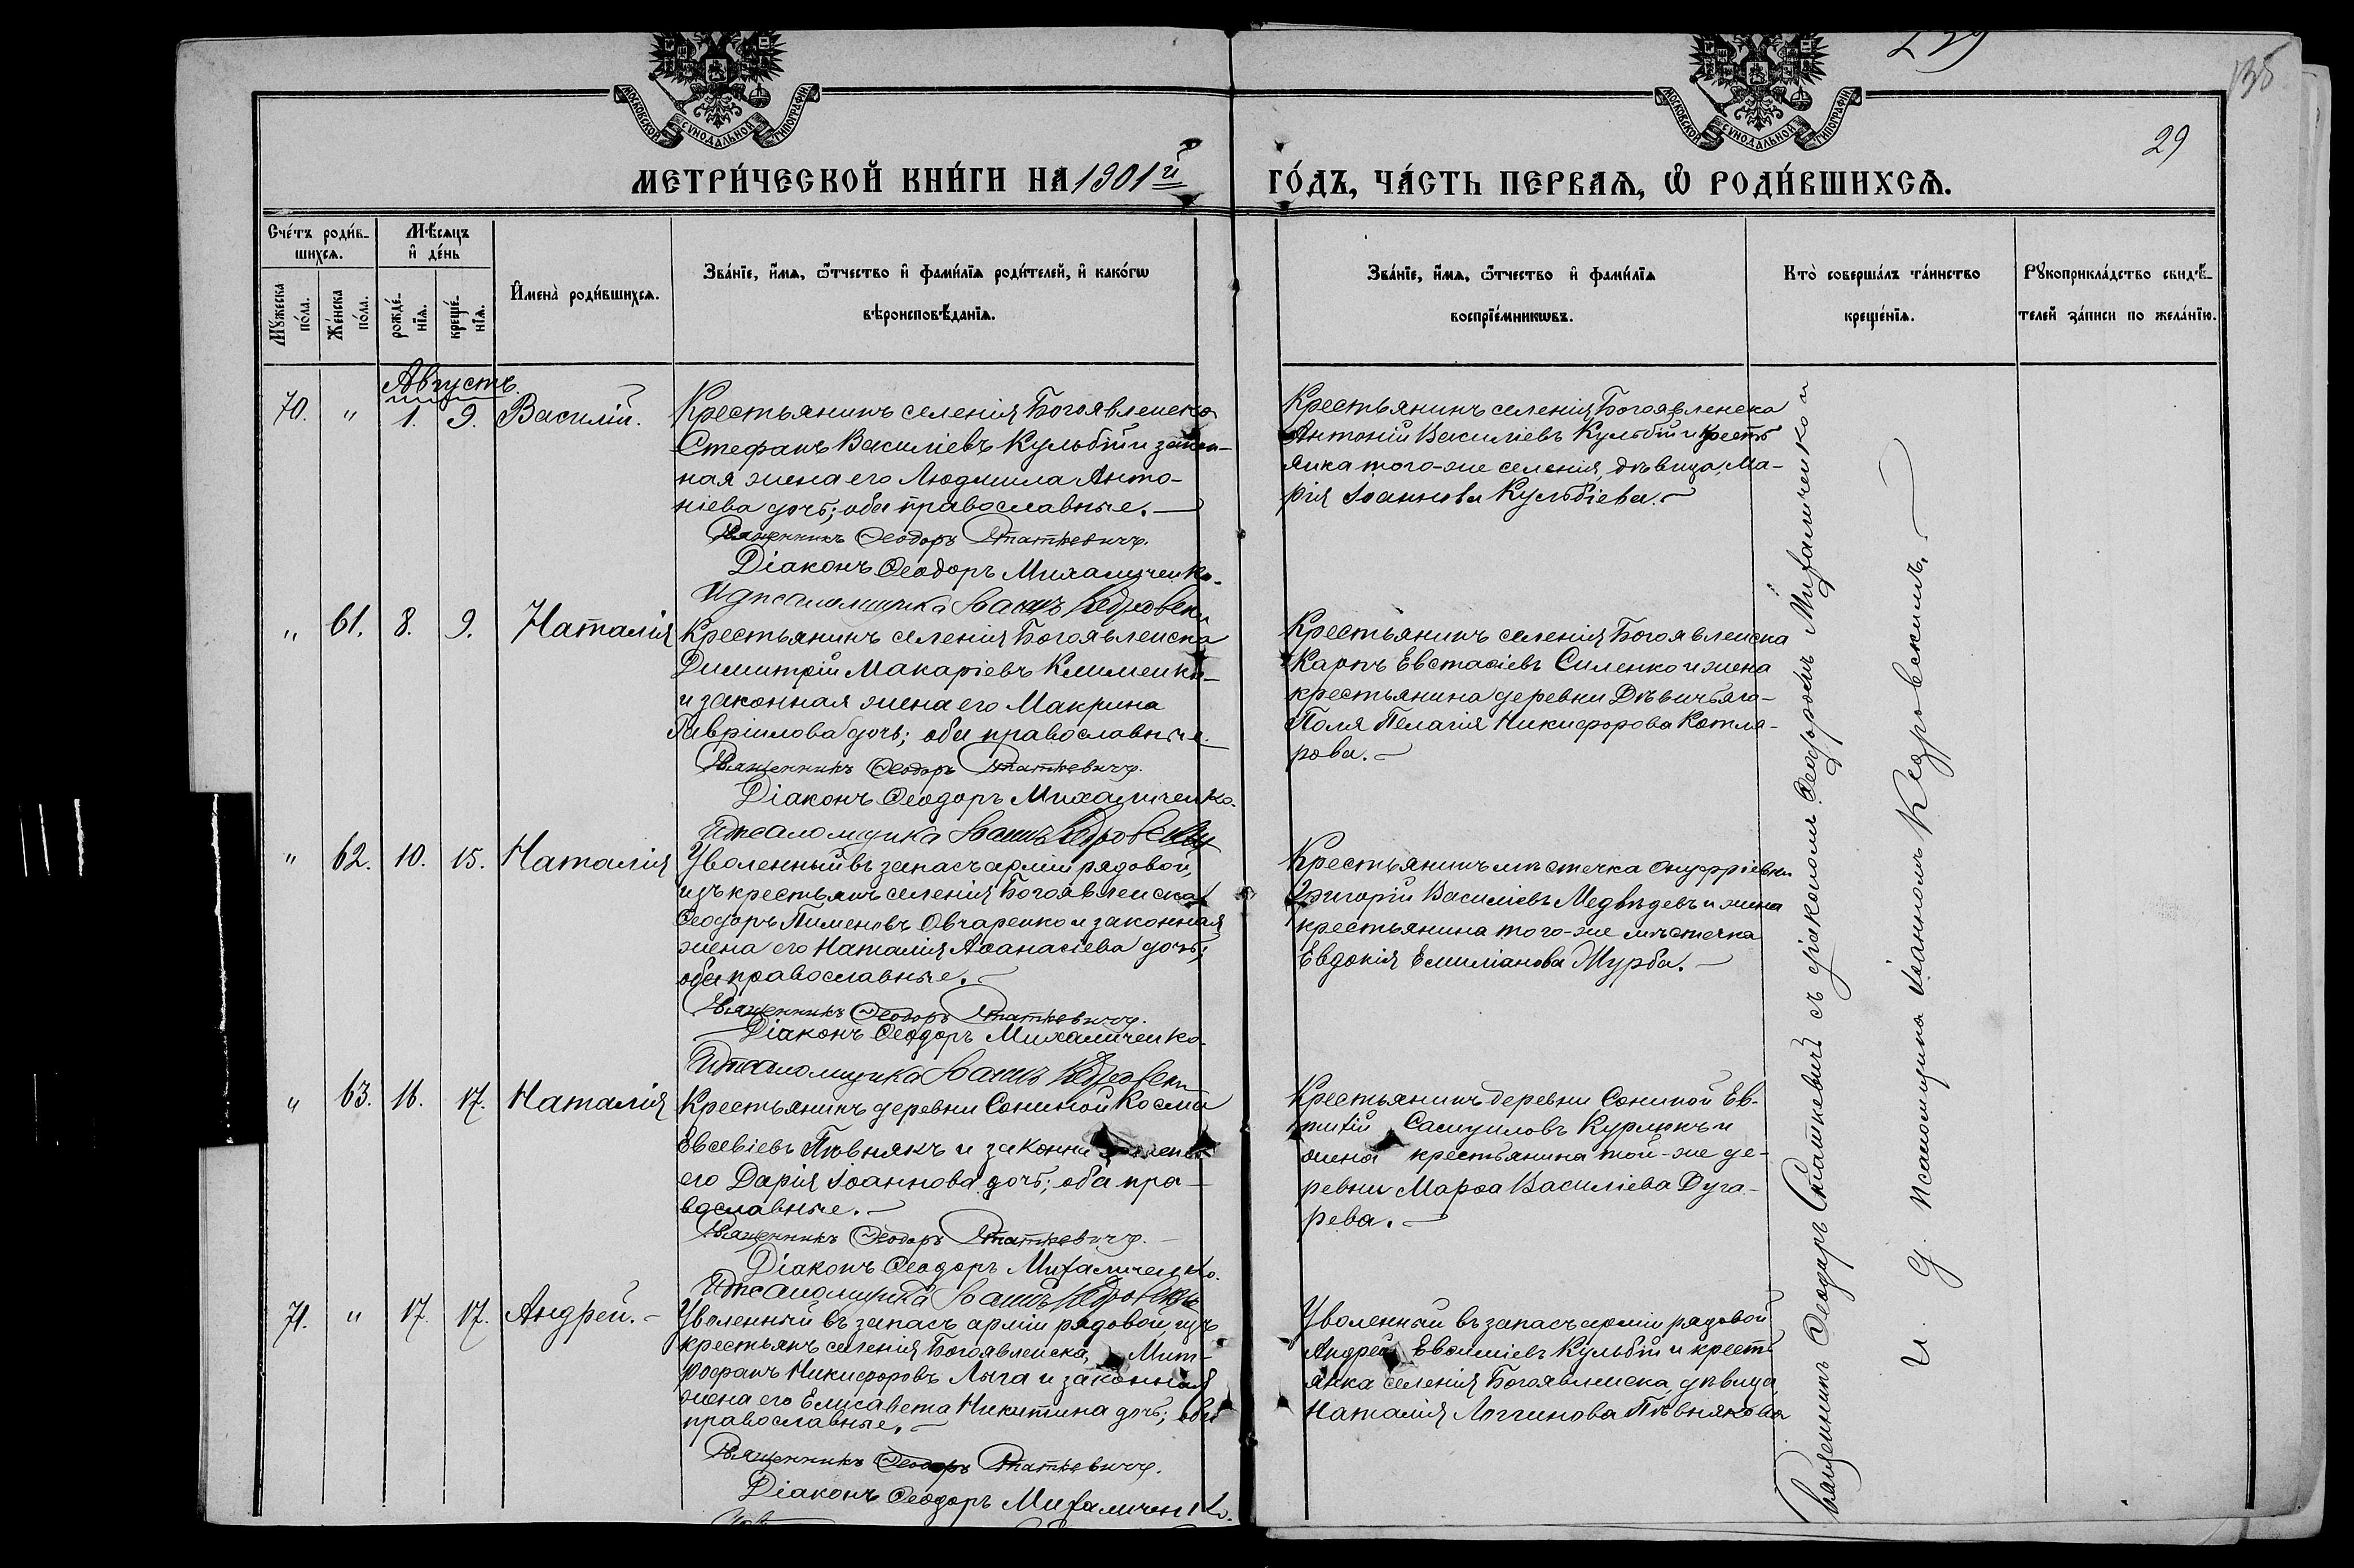 МОСКОВСКОЙ СѴНОДАЛЬНОЙ ТИПОГРАФІИ
МОСКОВСКОЙ СѴНОДАЛЬНОЙ ТИПОГРАФІИ
29
МЕТРИ́ЧЕСКОЙ КНИ́ГИ НА 1901й
ГО́ДЪ, ЧА́СТЬ ПЕРВАѦ, Ѡ҆ РОДИ́ВШИХСѦ.
Счétъ роди́в-
шихсѧ.
Мѣ́сѧцъ
и҆ де́нь
Мꙋ́жеска
по́ла.
Же́нска
по́ла.
рожде́-
нїѧ.
креще́-
нїѧ.
И҆мена̀ роди́вшихсѧ.
Зва́нїе, и҆́мѧ, ѻ҆́тчество и҆ фами́лїѧ роди́телей, и҆ како́гѡ
вѣроисповѣ́данїѧ.
Зва́нїе, и҆́мѧ, ѻ҆́тчество и҆ фами́лїѧ
воспрїе́мникѡвъ.
Кто̀ соверша́лъ та́инство
креще́нїѧ.
Рꙋкоприкла́дство свидѣ́-
телей за́писи по жела́нїю.
Августъ.
70. " 1. 9. Василій.
Крестьянинъ селенія Богоявленска
Стефанъ Василіевъ Кульбій и закон-
ная жена его Людмила Анто-
ніева дочь; оба православные.
Священникъ Ѳеодоръ Статкевичъ.
Діаконъ Ѳеодоръ Михаличенко.
И д псаломщика Іоаннъ Кедровскій
Крестьянинъ селенія Богоявленска
Антоній Василіевъ Кульбій и кресть
янка того-же селенія, дѣвица, Ма-
рія Іоаннова Кульбіева.
" 61. 8. 9. Наталія
Крестьянинъ селенія Богоявленска
Димитрій Макаріевъ Клименко
и законная жена его Макрина
Гавріилова дочь; оба православные.
Священникъ Ѳеодоръ Статкевичъ.
Діаконъ Ѳеодоръ Михаличенко.
И д псаломщика Іоаннъ Кедровскій
Крестьянинъ селенія Богоявленска
Карпъ Евстаѳіевъ Силенко и жена
крестьянина деревни Дѣвичьяго-
Поля Пелагія Никифорова Котля-
рова.
" 62. 10. 15. Наталія
Уволенный въ запасъ арміи рядовой,
изъ крестьянъ селенія Богоявленска
Ѳеодоръ Пименовъ Овчаренко и законная
жена его Наталія Аѳанасіева дочь;
оба православные.
Священникъ Ѳеодоръ Статкевичъ.
Діаконъ Ѳеодоръ Михаличенко.
И д псаломщика Іоаннъ Кедровскій
Крестьянинъ мѣстечка Онуфріевки
Григорій Василіевъ Медвѣдевъ и жена
крестьянина того-же мѣстечка
Евдокія Емиліанова Мурба.
" 63. 16. 17. Наталія
Крестьянинъ деревни Сониной Косма
Евсевіевъ Пѣвнякъ и законная жена
его Дарія Іоаннова дочь; оба пра-
вославные.
Священникъ Ѳеодоръ Статкевичъ.
Діаконъ Ѳеодоръ Михаличенко.
И д псаломщика Іоаннъ Кедровскій
Крестьянинъ деревни Сониной Ев-
тихій Самуиловъ Курлюкъ и
жена крестьянина той-же де-
ревни Марѳа Василіева Дуга-
рева.
71. " 17. 17. Андрей.
Уволенный въ запасъ арміи рядовой, изъ
крестьянъ селенія Богоявленска, Мит-
рофанъ Никифоровъ Лыга и законная
жена его Елисавета Никитина дочь; оба
православные.
Священникъ Ѳеодоръ Статкевичъ.
Діаконъ Ѳеодоръ Михаличенко.
Уволенный въ запасъ арміи рядовой
Андрей Евѳиміевъ Кульбій и кресть
янка селенія Богоявленска, дѣвица,
Наталія Логгинова Пѣвнякова
Священникъ Ѳеодоръ Статкевичъ съ діакономъ Ѳеодоромъ Михаличенко и
и. д. псаломщика Іоанномъ Кедровскимъ.